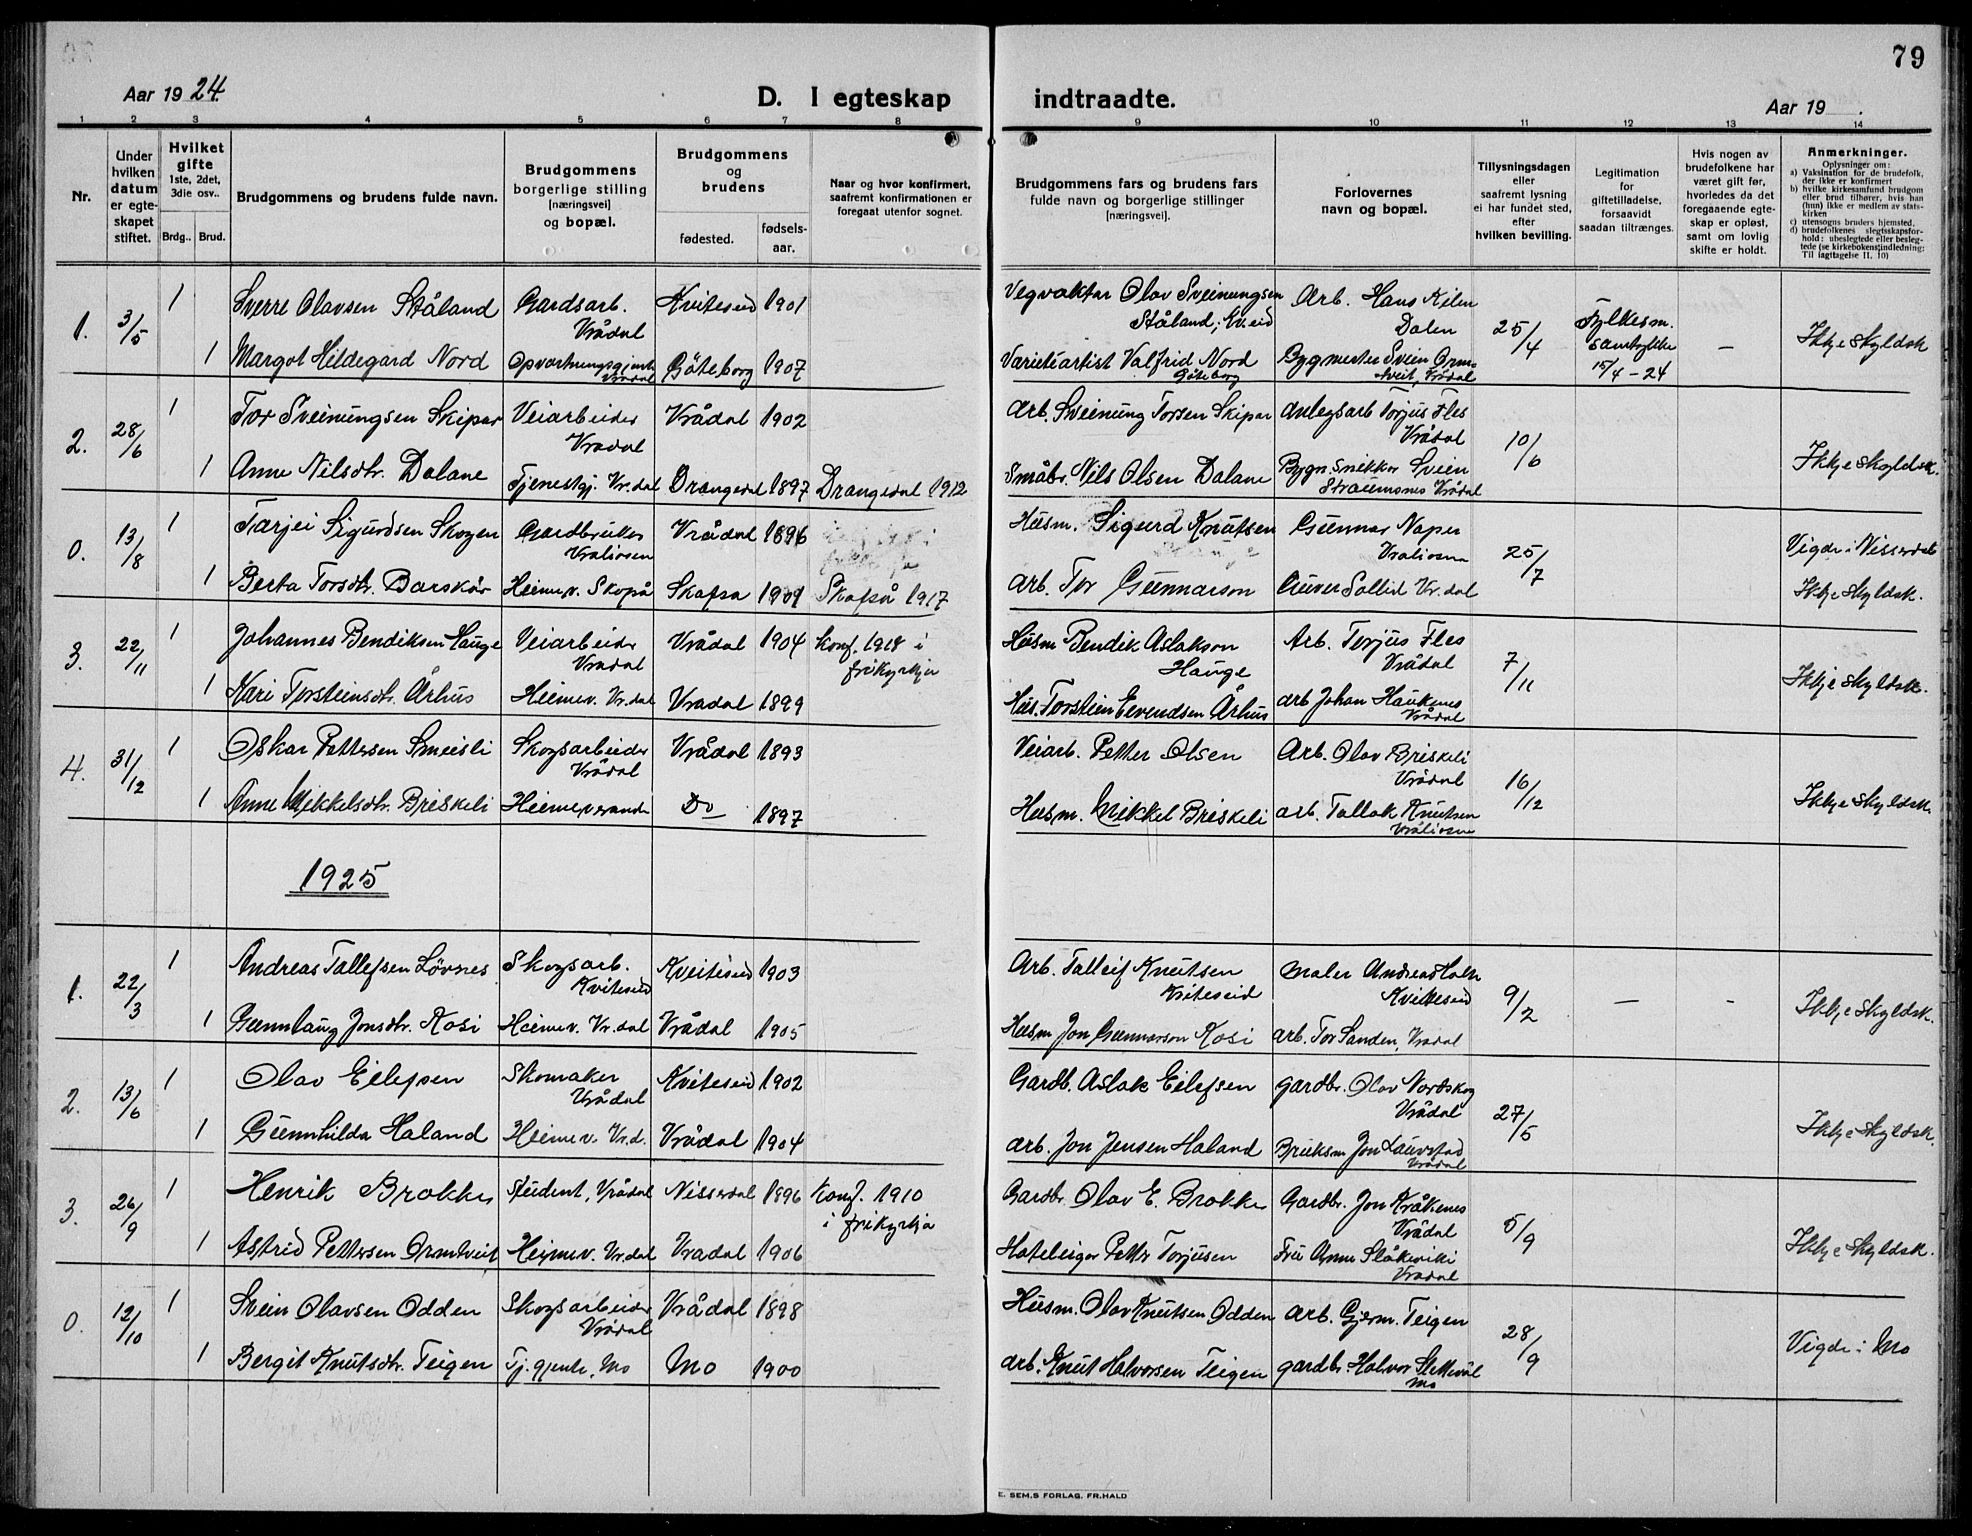 79
Aar 1924.
D. I egteskap indtraadte.
Aar 19 .
1 2 3 4 5 6 7 8 9 10 11 12 13 14
Nr.
Under hvilken datum er egteskapet stiftet.
Hvilket gifte 1ste, 2det, 3die osv..
Brdg.. Brud.
Brudgommens og brudens fulde navn.
Brudgommens borgerlige stilling [næringsvei] og bopæl.
Brudgommens og brudens
fødested.
fødselsaar.
Naar og hvor konfirmert, saafremt konfirmationen er foregaat utenfor sognet.
Brudgommens fars og brudens fars fulde navn og borgerlige stillinger [næringsvei].
Forlovernes navn og bopæl.
Tillysningsdagen eller saafremt lysning ei har fundet sted, efter hvilken bevilling.
Legitimation for giftetilladelse, forsaavidt saadan tiltrænges.
Hvis nogen av brudefolkene har været gift før, hvorledes da det foregaaende egteskap er opløst, samt om lovlig skifte er holdt.
Anmerkninger.
Oplysninger om:
a) Vaksination for de brudefolk, der ikke er konfirmert
b) hvilke kirkesamfund brudgom eller brud tilhører, hvis han (hun) ikke er medlem av statskirken
c) utensogns bruders hjemsted.
d) brudefolkenes slegtsskapsforhold: ubeslegtede eller beslegtede (se kirkebokens indledning: Til iagttagelse II, 10)
1. 3/5 1 Sverre Olavsen Ståland Gardsarb. Vrådal Kviteseid 1901 Vegvaktar Olav Sveinungsen Ståland, Kv.eid Arb. Hans Kilen Dalen 25/4 Fylkesm. samtykke 15/4-24 – Ikkje skyldsk
1 Margot Hildegard Nord Opvartningsgjente Vrådal Göteborg 1907 Varietéartist Valfrid Nord Göteborg Bygmester Svein Ormtveit, Vrådal
2. 28/6 1 Tor Sveinungsen Skipar Veiarbeider Vradal Vrådal 1902 Arb. Sveinung Torsen Skipar Anlegsarb Torjus Fles Vrådal 10/6 Ikkje skyldsk.
1 Anne Nilsdtr. Dalane Tjenestgj. Vr.dal Drangedal 1897 Drangedal 1912 Småbr. Nils Olsen Dalane Bygn.snikkar Svein Straumsnes Vrådal
0. 13/8 1 Tarjei Sigurdsen Skogen Gardbruker Vraliosen Vrådal 1896 Husm. Sigurd Knutsen Gunnar Naper Vraliosen 25/7 Vigde i Nissedal
1 Berta Torsdtr. Barskår Heimev. Skafså Skafsa 1901 Skafså 1917 Arb. Tor Gunnarson Guver Sollid Vr.dal Ikkje skyldsk.
3. 22/11 1 Johannes Bendiksen Hauge Veiarbeider Vradal Vrådal 1904 Konf. 1918 i frikyrkja Husm Bendik Aslakson Hauge Arb. Torjus Fles Vrådal 7/11 Ikkje skyldsk.
1 Kari Torsteinsdtr. Århus Heimev. Vr.dal Vradal 1899 Hus. Torstein Eevendsen Århus arb Johan Haukenes Vrådal
4. 31/12 1 Oskar Pettersen Smeisli Skogsarbeider Vrådal Vrådal 1893 Veiarb. Petter Olsen Arb. Olav Briskeli Vrådal 16/12 Ikkje skyldsk.
1 Anne Mikkelsdtr. Briskeli Heimeverande Do 1897 Husm. Mikkel Briskeli arb. Tallak Knutsen Vråliosen
1925
1. 22/3 1 Andreas Tallefsen Lövnes Skogsarb. Kviteseid Kviteseid 1903 Arb. Talleif Knutsen Kviteseid Maler Andreas Holm Kviteseid 9/2 – – Ikkje skyldsk.
1 Gunnlaug Jonsdtr. Kosi Heimev. Vr.dal Vrådal 1905 Husm Jon Gunnarson Kosi arb. Tor Sanden, Vradal
2. 13/6 1 Olav Eilefsen Skomaker Vrådal Kviteseid 1902 Gardb. Aslak Eilefsen gardbr. Olav Nordskog Vrådal 27/5 Ikkje skyldsk.
1 Gunnhilda Haland Heimev. Vr.d. Vrådal 1904 arb. Jon Jensen Haland Bruksm Jon Lauvstad Vrådal
3. 26/9 1 Henrik Brokke Student, Vrådal Nissedal 1896 Konf. 1910 i frikyrkja Gardbr. Olav E. Brokke Gardbr. Jon Kråkenes Vrådal 5/9 Ikkje skyldsk.
1 Astrid Pettersen Ormtveit Heimev. Vr.dal Vradal 1906 Hoteleigar Petter Torjusen Fru Anne Slåkeviki Vradal
0. 12/10 1 Svein Olavsen Odden Skogsarbeider Vrådal Vrådal 1898 Husm. Olav Knutsen Odden arb. Gjerm. Teigen 28/9 Vigde i Mo
1 Bergit Knutsdtr. Teigen Tj.gjente, Mo Mo 1900 arb. Knut Halvorsen Teigen gardbr. Halvor Mo
E. SEM.S FORLAG, FR.HALD